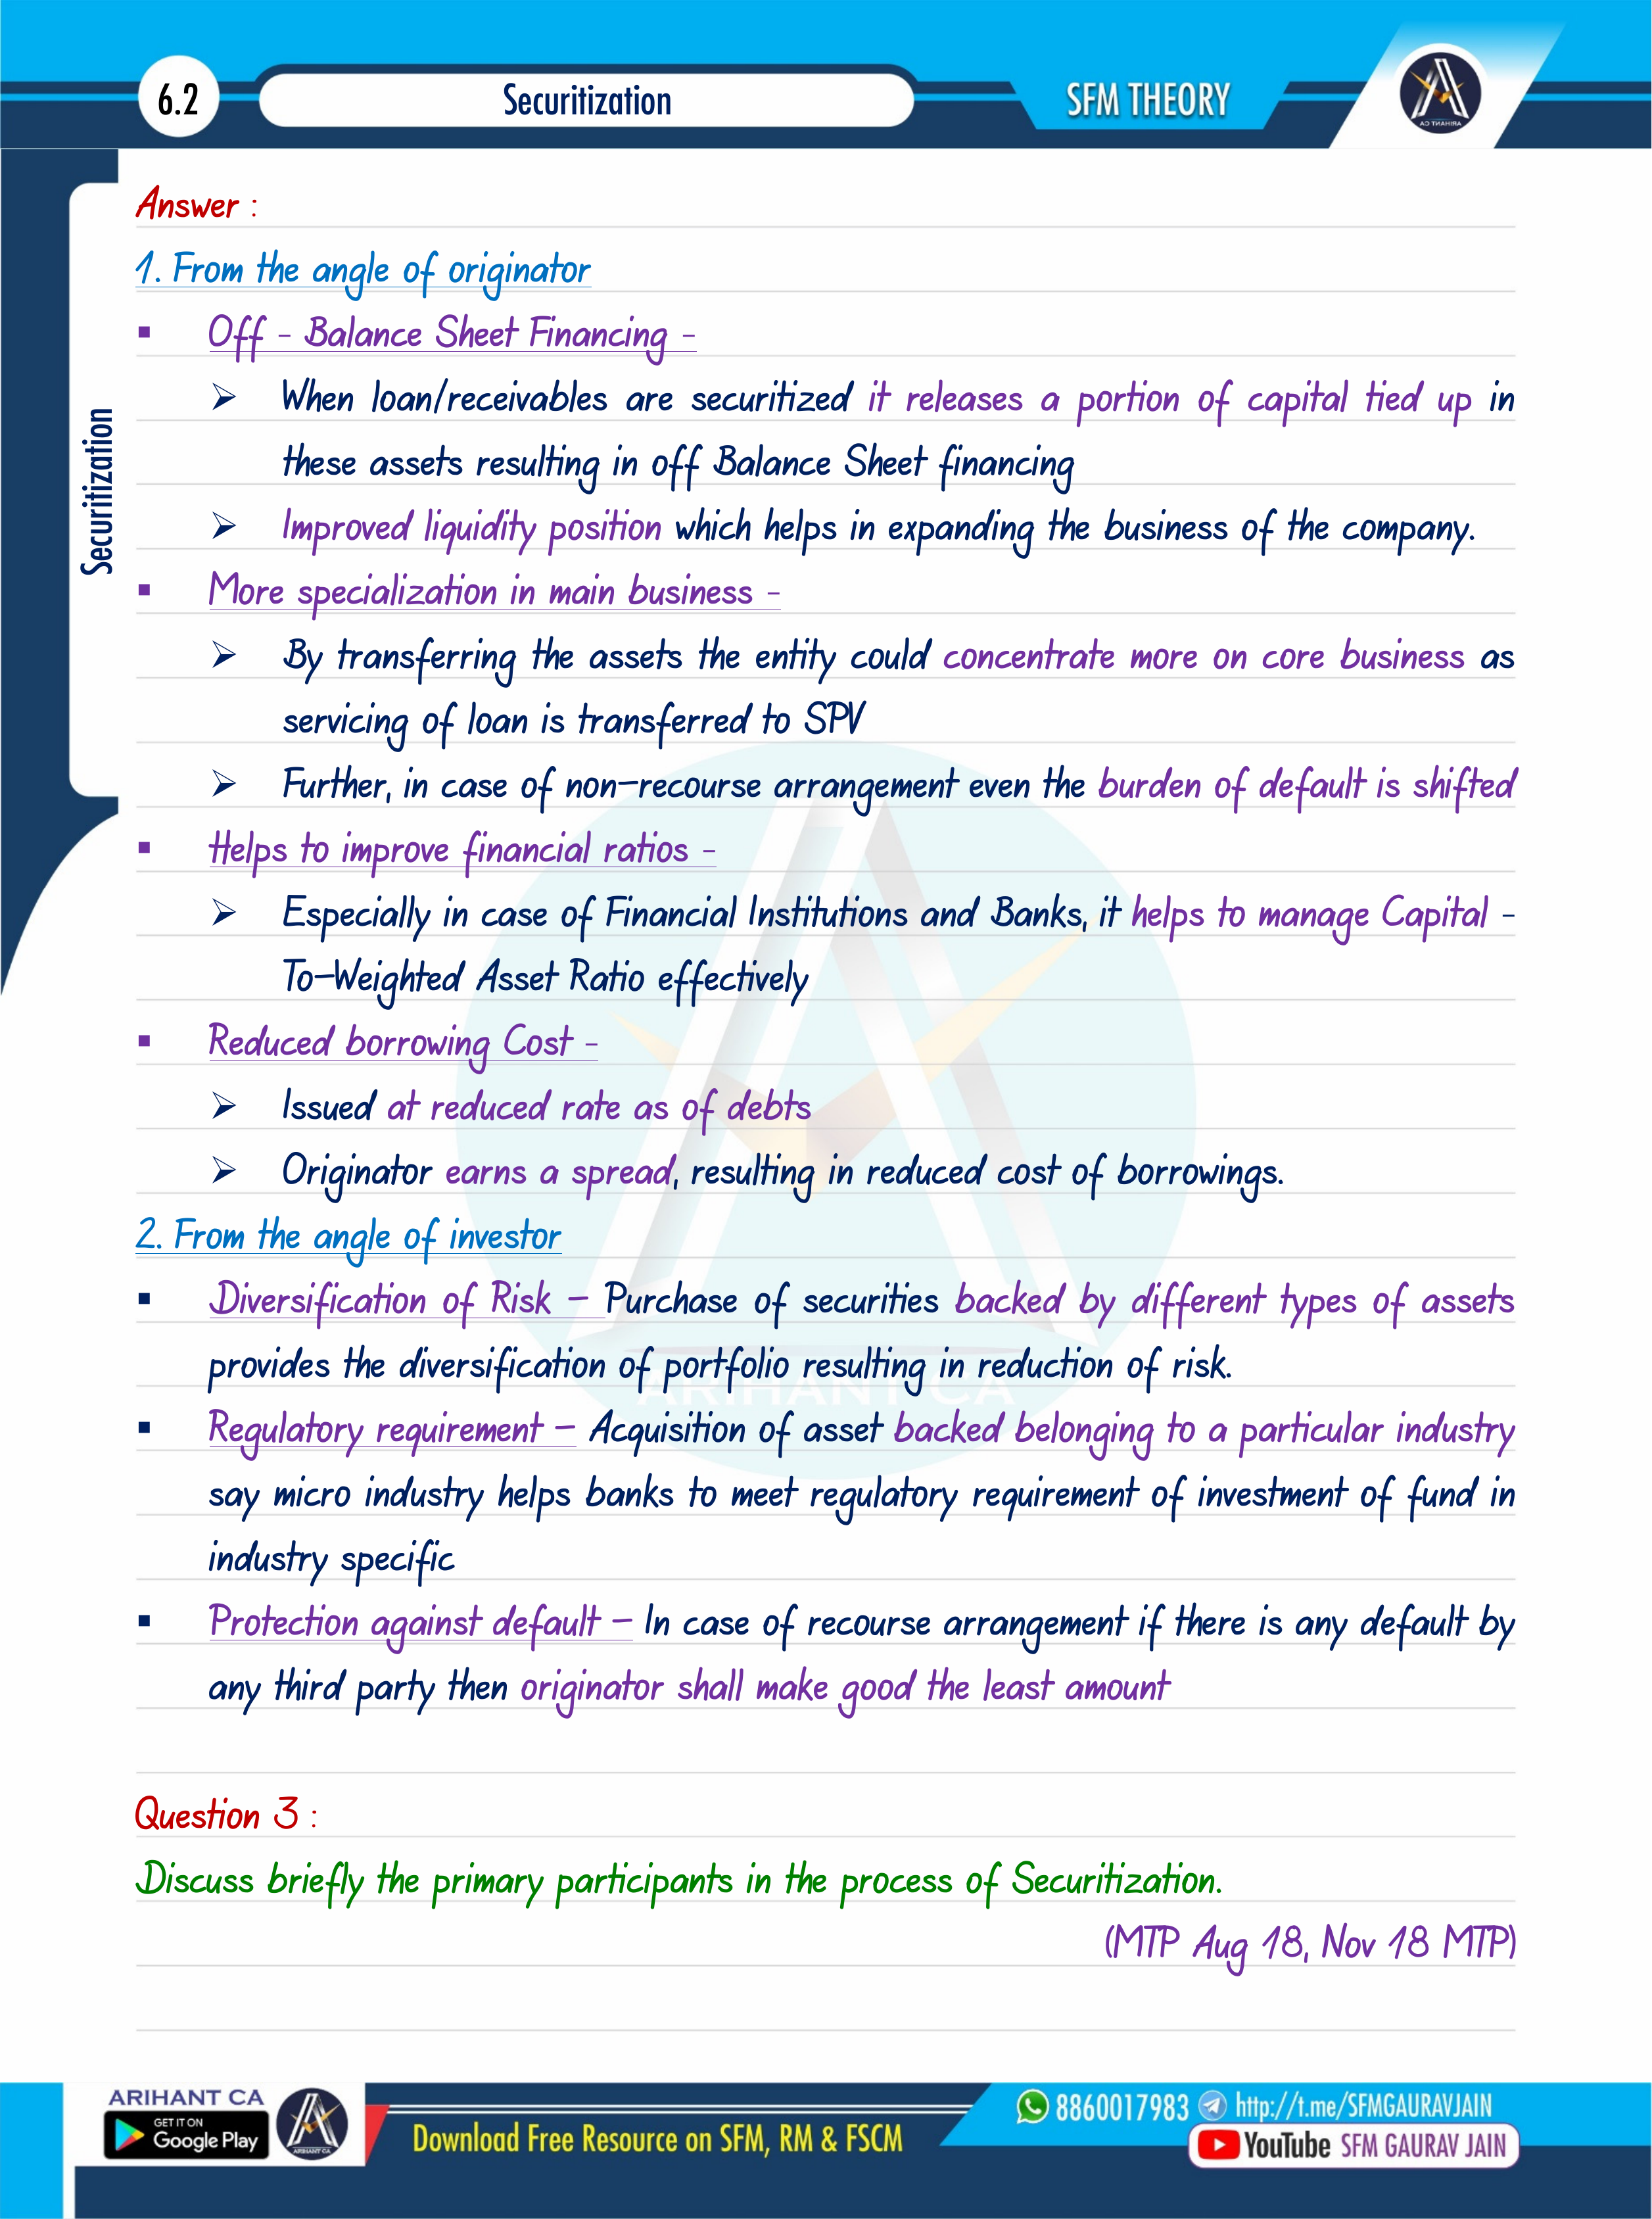 6.2
Securitization
SFM THEORY
ARIHANT CA
Securitization
Answer :
1. From the angle of originator
▪ Off - Balance Sheet Financing -
➢ When loan/receivables are securitized it releases a portion of capital tied up in
these assets resulting in off Balance Sheet financing
➢ Improved liquidity position which helps in expanding the business of the company.
▪ More specialization in main business -
➢ By transferring the assets the entity could concentrate more on core business as
servicing of loan is transferred to SPV
➢ Further, in case of non–recourse arrangement even the burden of default is shifted
▪ Helps to improve financial ratios -
➢ Especially in case of Financial Institutions and Banks, it helps to manage Capital -
To–Weighted Asset Ratio effectively
▪ Reduced borrowing Cost -
➢ Issued at reduced rate as of debts
➢ Originator earns a spread, resulting in reduced cost of borrowings.
2. From the angle of investor
▪ Diversification of Risk – Purchase of securities backed by different types of assets
provides the diversification of portfolio resulting in reduction of risk.
▪ Regulatory requirement – Acquisition of asset backed belonging to a particular industry
say micro industry helps banks to meet regulatory requirement of investment of fund in
industry specific
▪ Protection against default – In case of recourse arrangement if there is any default by
any third party then originator shall make good the least amount
ARIHANT CA
Question 3 :
Discuss briefly the primary participants in the process of Securitization.
(MTP Aug 18, Nov 18 MTP)
ARIHANT CA
GET IT ON
Google Play
ARIHANT CA
Download Free Resource on SFM, RM & FSCM
8860017983 http://t.me/SFMGAURAVJAIN
YouTube SFM GAURAV JAIN